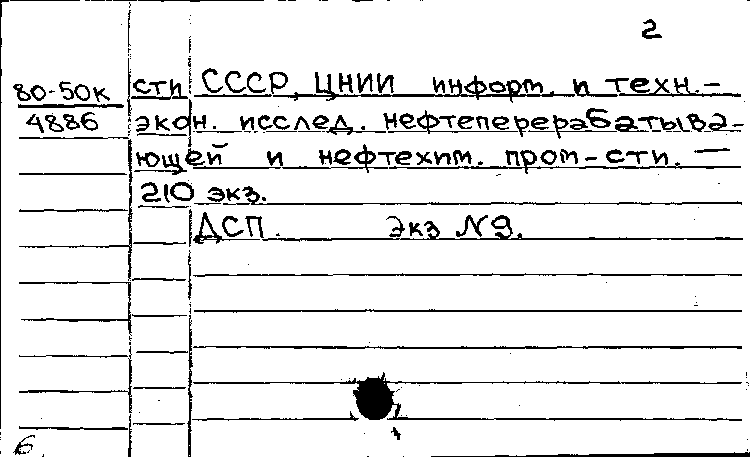 2
80-50к
4886
сти СССР, ЦНИИ информ. и техн.-
экон. исслед. нефтеперерабатыва-
ющей и нефтехим. пром-сти. —
210 экз.
ДСП. Экз №9.
6.